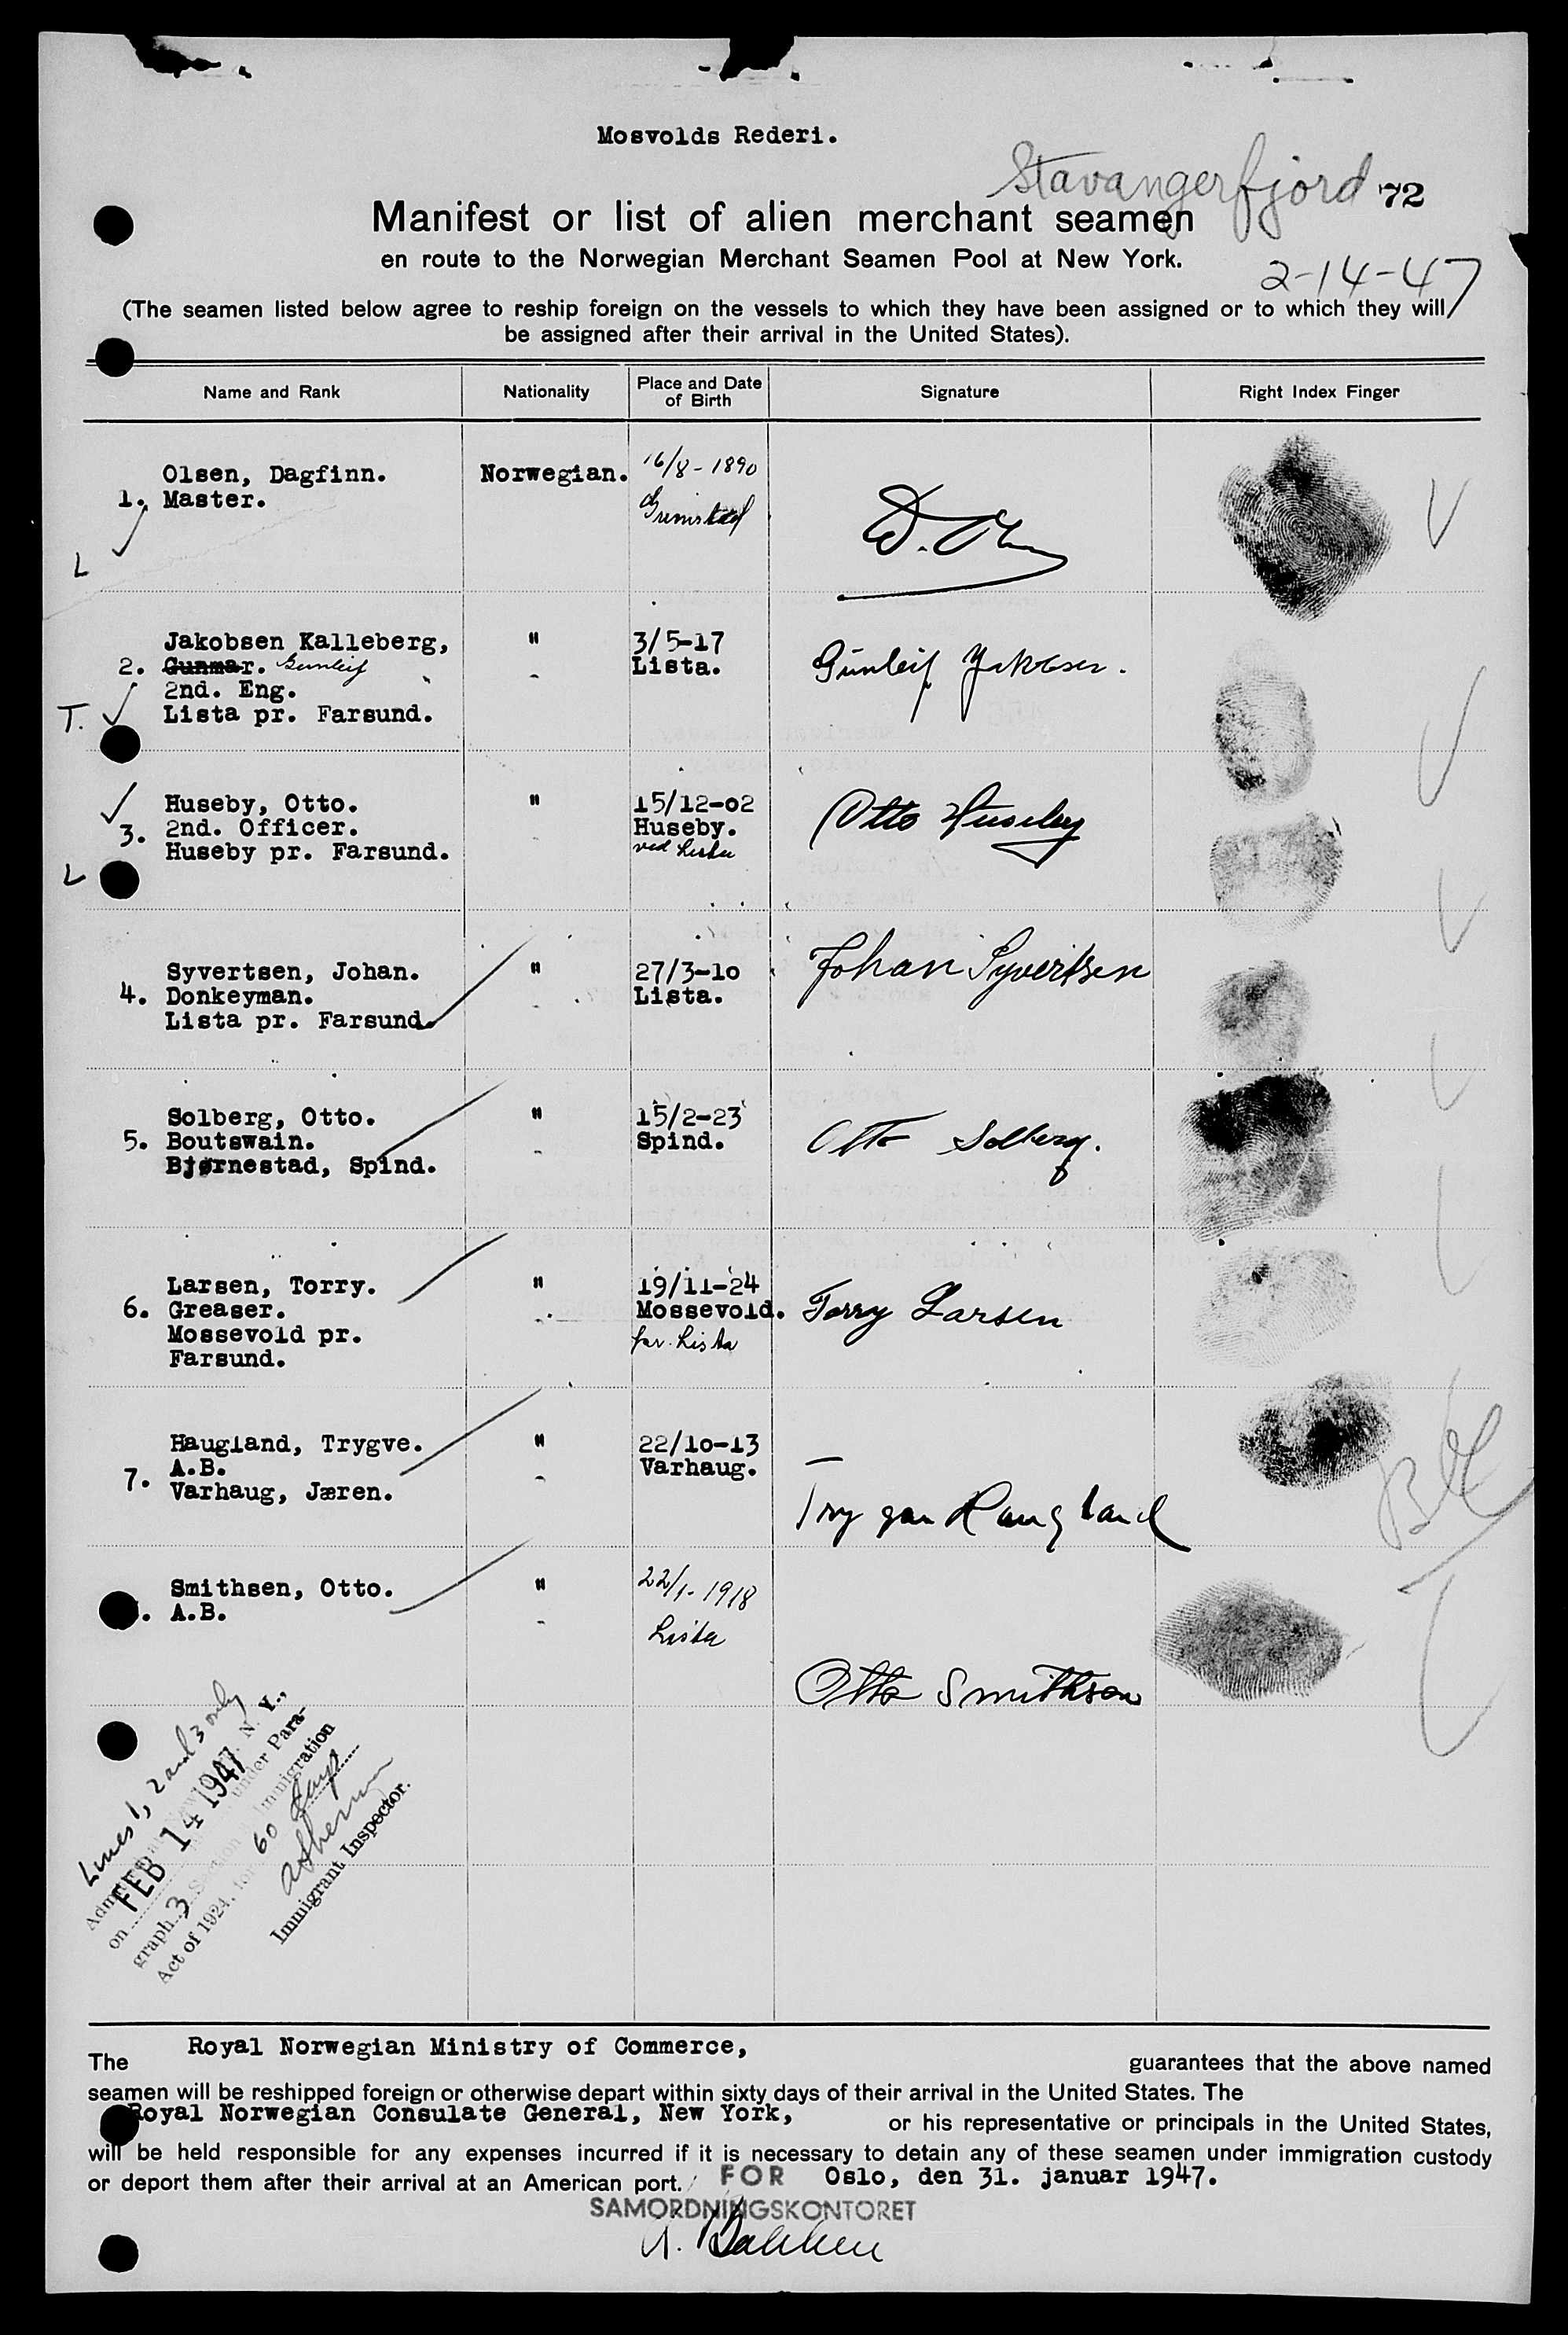 Mosvolds Rederi.
Stavangerfjord 72
Manifest or list of alien merchant seamen
en route to the Norwegian Merchant Seamen Pool at New York.
2-14-47
(The seamen listed below agree to reship foreign on the vessels to which they have been assigned or to which they will
be assigned after their arrival in the United States).
Name and Rank Nationality Place and Date of Birth Signature Right Index Finger
Olsen, Dagfinn. Norwegian. 16/8-1890
1. Master. Grimstad
L
D. Olsen
Jakobsen Kalleberg, " 3/5-17
2. Gunnar. Gunleif Lista. Gunleif Jakobsen.
2nd. Eng.
T. Lista pr. Farsund.
Huseby, Otto. " 15/12-02
3. 2nd. Officer. Huseby. Otto Huseby
Huseby pr. Farsund. ved Lista
L
Syvertsen, Johan. " 27/3-10 Johan Syvertsen
4. Donkeyman. Lista.
Lista pr. Farsund.
Solberg, Otto. " 15/2-23
5. Boutswain. Spind. Otto Solberg.
Bjørnestad, Spind.
Larsen, Torry. " 19/11-24
6. Greaser. Mossevold. Torry Larsen
Mossevold pr. par. Lista
Farsund.
Haugland, Trygve. " 22/10-13
7. A.B. Varhaug.
Varhaug, Jæren.
Haugland
Smithsen, Otto. " 22/1-1918
. A.B. Lista
Otto Smithsen
Lines 1, 2 and 3 only
N. Y.,
on FEB 14 1947 under Para-
graph 3 Immigration
Act of 1924, for 60 days
Immigrant Inspector.
The Royal Norwegian Ministry of Commerce, guarantees that the above named
seamen will be reshipped foreign or otherwise depart within sixty days of their arrival in the United States. The
Royal Norwegian Consulate General, New York, or his representative or principals in the United States,
will be held responsible for any expenses incurred if it is necessary to detain any of these seamen under immigration custody
or deport them after their arrival at an American port. FOR Oslo, den 31. januar 1947.
SAMORDNINGSKONTORET